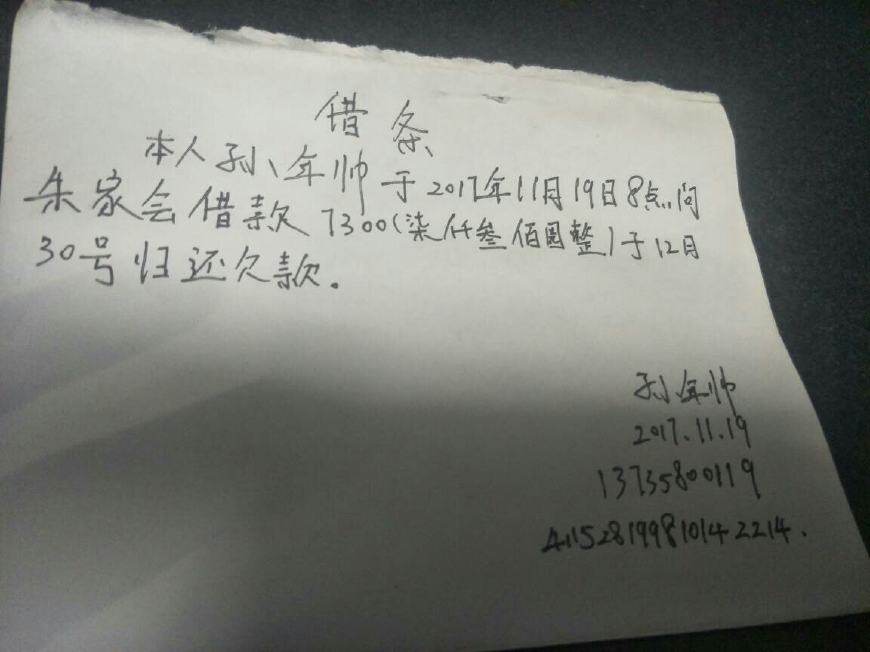 借条
本人孙年帅于2017年11月19日8点.问
朱家会借款7300(柒仟叁佰圆整)于12月
30号归还欠款.
孙年帅
2017.11.19
13735800119
411528199810142214.